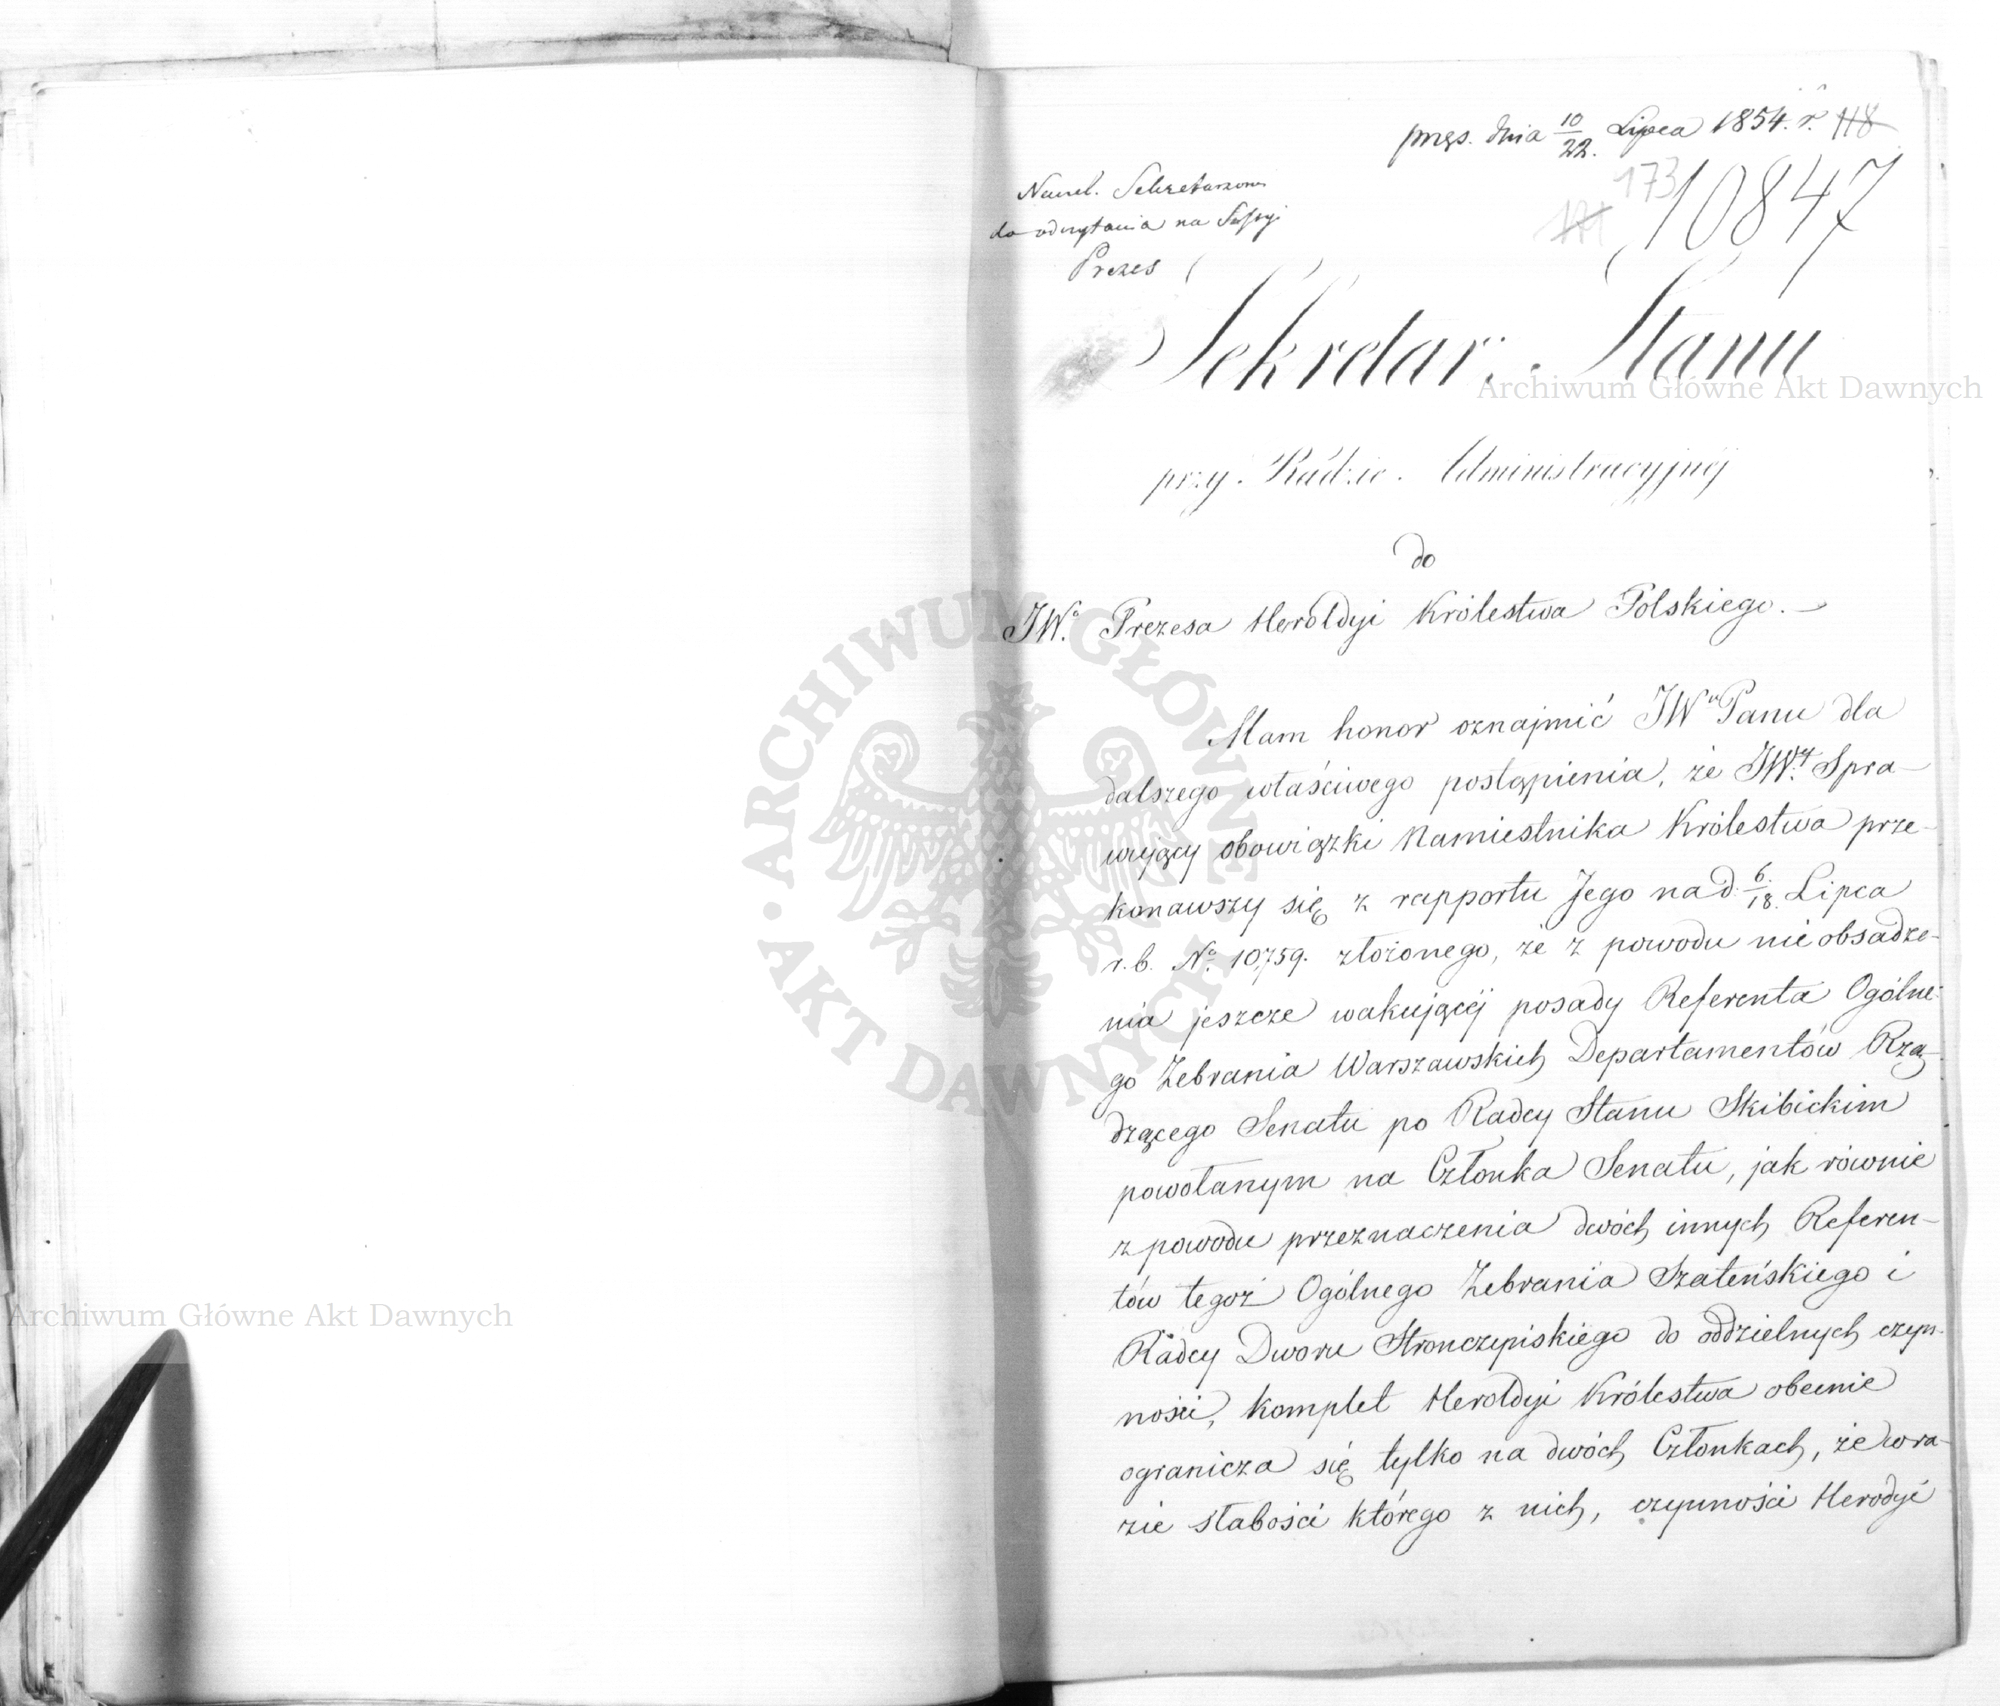 prez. dnia 10/22. Lipca 1854. r. 118
173
171
10847
Naczel. Sekretarzowi
do odczytania na Sessyi
Prezes
Sekretarz Stanu
przy Radzie Administracyjnéj
do
JWo. Prezesa Heroldyi Królestwa Polskiego.—
Mam honor oznajmić JWu Panu dla
dalszego właściwego postąpienia, że JWy. Spra-
wujący obowiązki Namiestnika Królestwa prze-
konawszy się z rapportu Jego na d. 6/18. Lipca
r. b. No. 10,759. złożonego, że z powodu nie obsadze-
nia jeszcze wakującéj posady Referenta Ogólne-
go Zebrania Warszawskich Departamentów Rzą-
dzącego Senatu po Radcy Stanu Skibickim
powołanym na Członka Senatu, jak równie
z powodu przeznaczenia dwóch innych Referen-
tów tegoż Ogólnego Zebrania Szateńskiego i
Radcy Dworu Stronczyńskiego do oddzielnych czyn-
ności, komplet Heroldyi Królestwa obecnie
ogranicza się tylko na dwóch Członkach, że w ra-
zie słabości którego z nich, czynności Herodyi
Archiwum Główne Akt Dawnych
Archiwum Główne Akt Dawnych
ARCHIWUM GŁÓWNE · AKT DAWNYCH ·